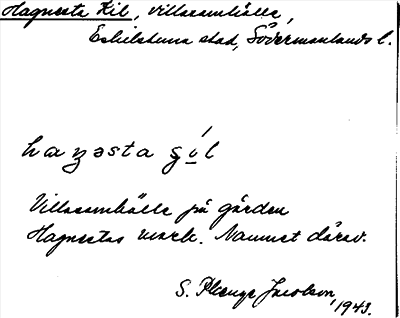 Hagnesta Kil, villasamhälle,
Eskilstuna stad, Södermanlands l.
Villasamhälle på gården
Hagnestas mark. Namnet därav.
S. Plenge Jacobson, 1943.